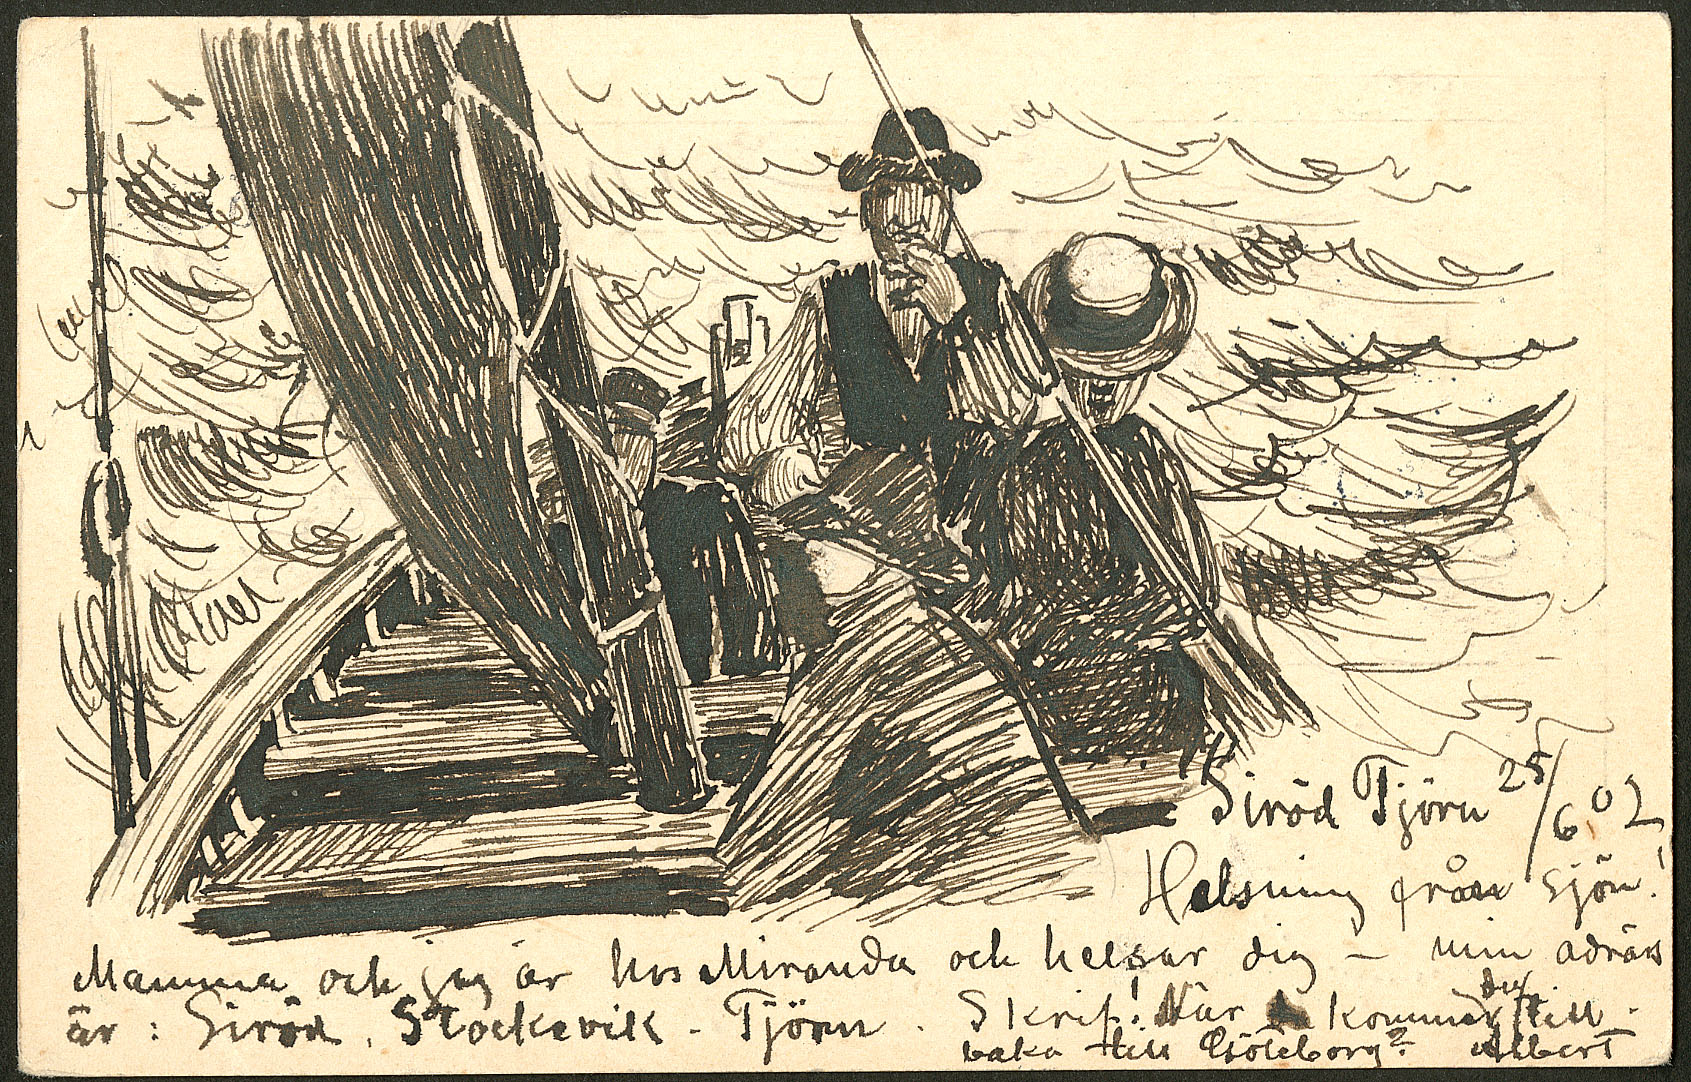 Siröd Tjörn 25/6 02
Helsning från sjön!
Mamma och jag är hos Miranda och helsar dig – min adräss
är : Siröd, Stockevik - Tjörn . Skrif! När kommer du till-
baka till Göteborg? Albert